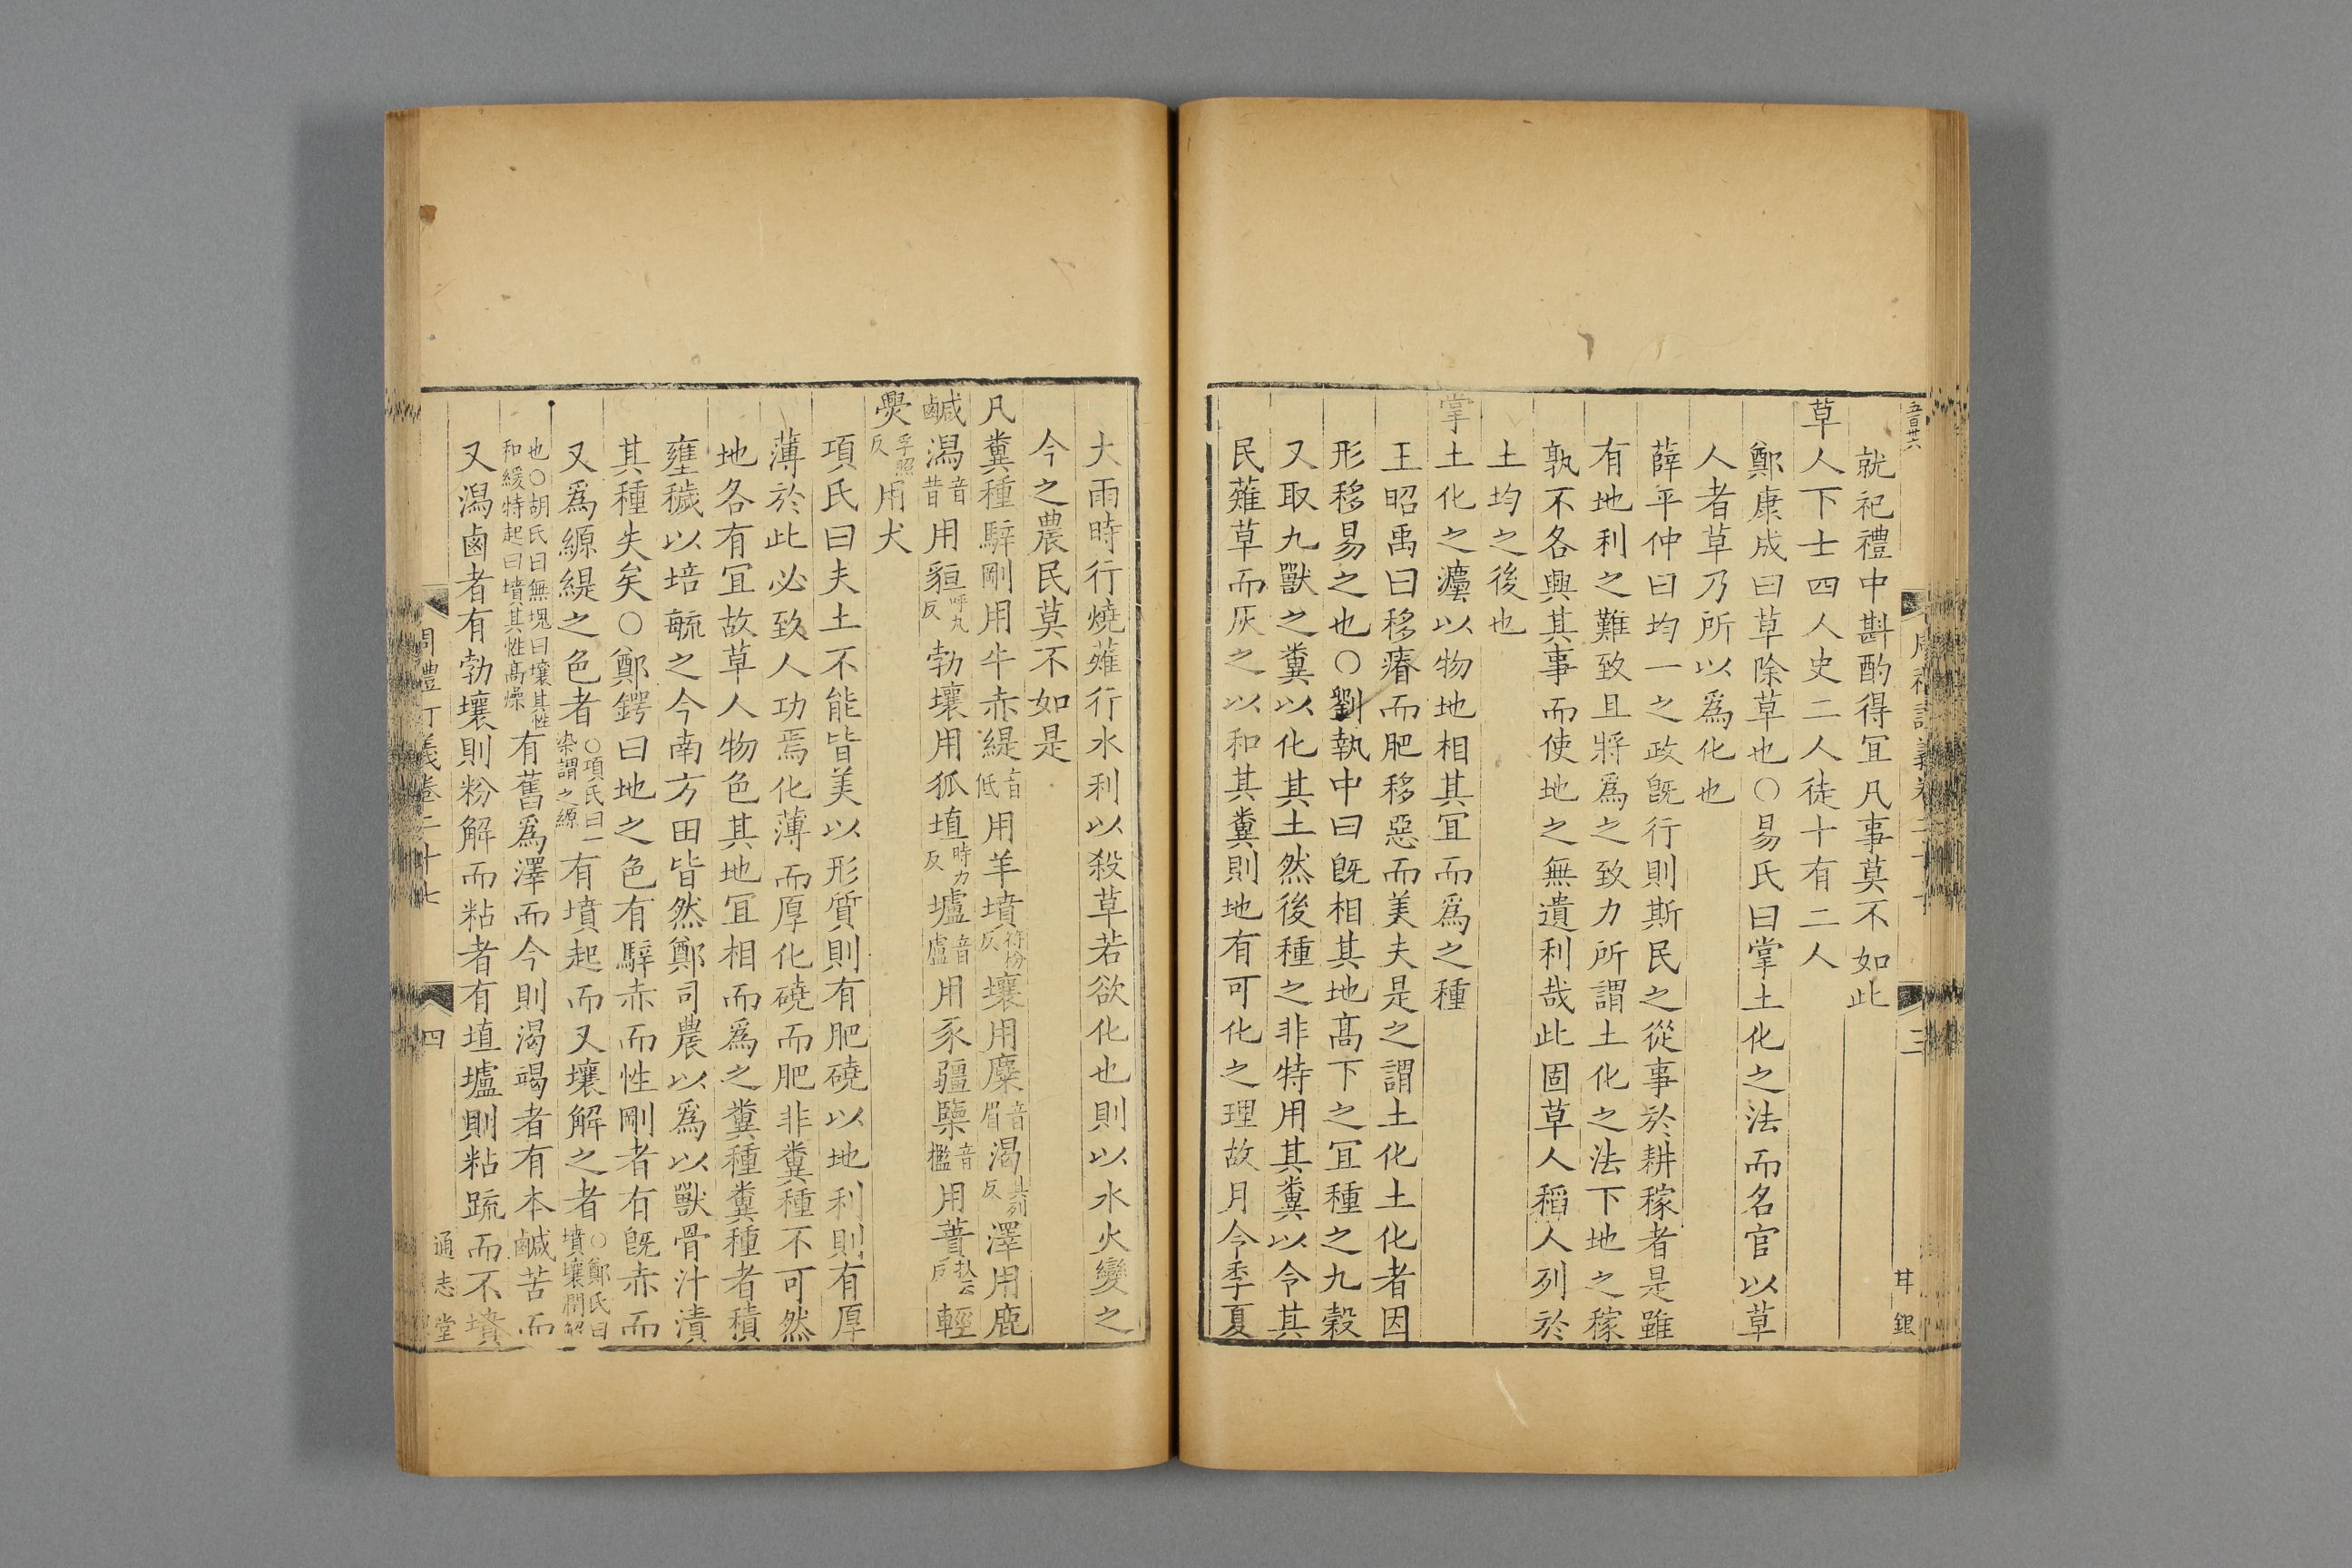 五百廿六
就祀禮中斟酌得宜凡事莫不如此
草人下士四人史二人徒十有二人
鄭康成曰草除草也○易氏曰掌土化之法而名官以草
人者草乃所以爲化也
薛平仲曰均一之政旣行則斯民之從事於耕稼者是雖
有地利之難致且將爲之致力所謂土化之法下地之稼
孰不各興其事而使地之無遺利哉此固草人稻人列於
土均之後也
掌土化之灋以物地相其宜而爲之種
王昭禹曰移瘠而肥移惡而美夫是之謂土化土化者因
形移易之也○劉執中曰旣相其地髙下之宜種之九穀
又取九獸之糞以化其土然後種之非特用其糞以令其
民薙草而灰之以和其糞則地有可化之理故月令季夏
三
甘銀
大雨時行燒薙行水利以殺草若欲化也則以水火變之
今之農民莫不如是
凡糞種騂剛用牛赤緹音低用羊墳符粉反壤用麋音眉渴其列反澤用鹿
鹹潟音昔用貆呼丸反勃壤用狐埴時力反壚音盧用豕彊㯺音檻用蕡扶云反輕
㷼孚照反用犬
項氏曰夫土不能皆美以形質則有肥磽以地利則有厚
薄於此必致人功焉化薄而厚化磽而肥非糞種不可然
地各有宜故草人物色其地宜相而爲之糞種糞種者積
壅穢以培毓之今南方田皆然鄭司農以爲以獸骨汁漬
其種失矣○鄭鍔曰地之色有騂赤而性剛者有旣赤而
又爲縓緹之色者○項氏曰一染謂之縓有墳起而又壤解之者○鄭氏曰墳壤潤解
也○胡氏曰無塊曰壤其性和緩特起曰墳其性髙燥有舊爲澤而今則渴竭者有本鹹苦而
又潟鹵者有勃壤則粉解而粘者有埴壚則粘疏而不墳
周禮訂義卷二十七
四
通志堂